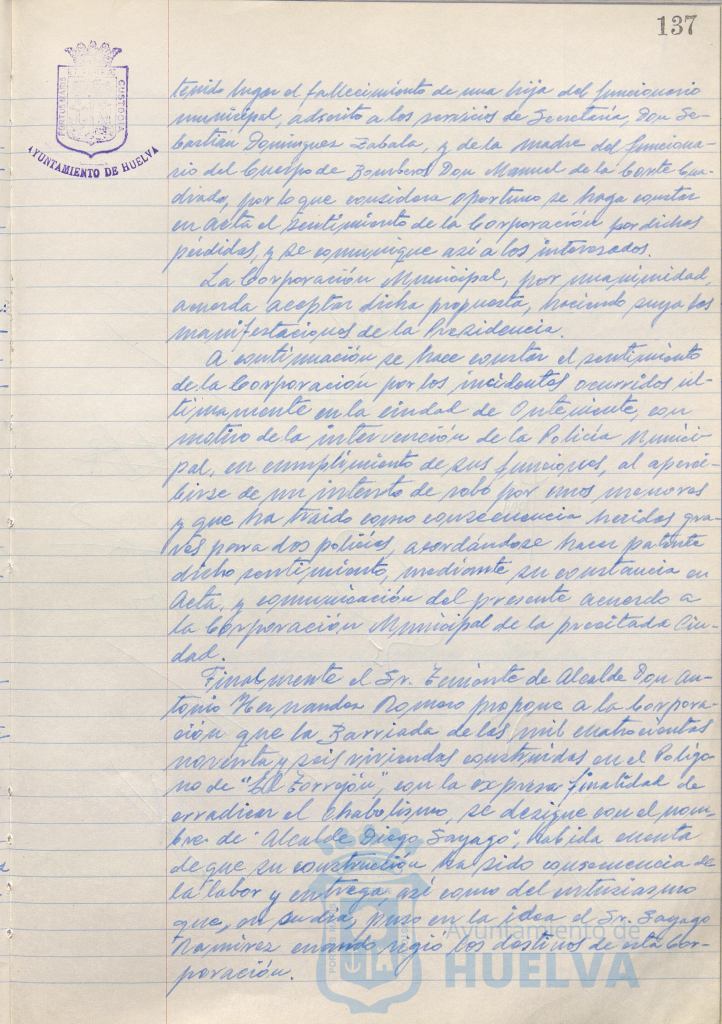 137
PORTUS MARIS ET TERRAE CUSTODIA
AYUNTAMIENTO DE HUELVA
tenido lugar el fallecimiento de una hija del funcionario
municipal, adscrito a los servicios de Secretaría, Don Se-
bastián Dominguez Zabala, y de la madre del funciona-
rio del Cuerpo de Bomberos Don Manuel de la Corte Cua-
drado, por lo que considera oportuno se haga constar
en Acta el sentimiento de la Corporación por dichas
pérdidas, y se comunique así a los interesados.
La Corporación Municipal, por unanimidad,
acuerda aceptar dicha propuesta, haciendo suya las
manifestaciones de la Presidencia.
A continuación se hace constar el sentimiento
de la Corporación por los incidentes ocurridos ul-
timamente en la ciudad de Onteniente, con
motivo de la intervención de la Policía Munici-
pal, en cumplimiento de sus funciones, al aperci-
birse de un intento de robo por unos menores
y que ha traido como consecuencia heridas gra-
ves para dos policías, acordándose hacer patente
dicho sentimiento, mediante su constancia en
Acta, y comunicación del presente acuerdo a
la Corporación Municipal de la precitada Ciu-
dad.
Finalmente el Sr. Teniente de Alcalde Don An-
tonio Hernandez Romero propone a la Corpora-
ción que la Barriada de las mil cuatrocientas
noventa y seis viviendas construidas en el Polígo-
no de "El Torrejón", con la expresa finalidad de
erradicar el chabolismo, se designe con el nom-
bre de "Alcalde Diego Sayago", habida cuenta
de que su construcción ha sido consecuencia de
la labor y entrega, así como del entusiasmo
que, en su dia, puso en la idea el Sr. Sayago
Ramírez cuando rigió los destinos de esta Cor-
poración.
Ayuntamiento de
HUELVA